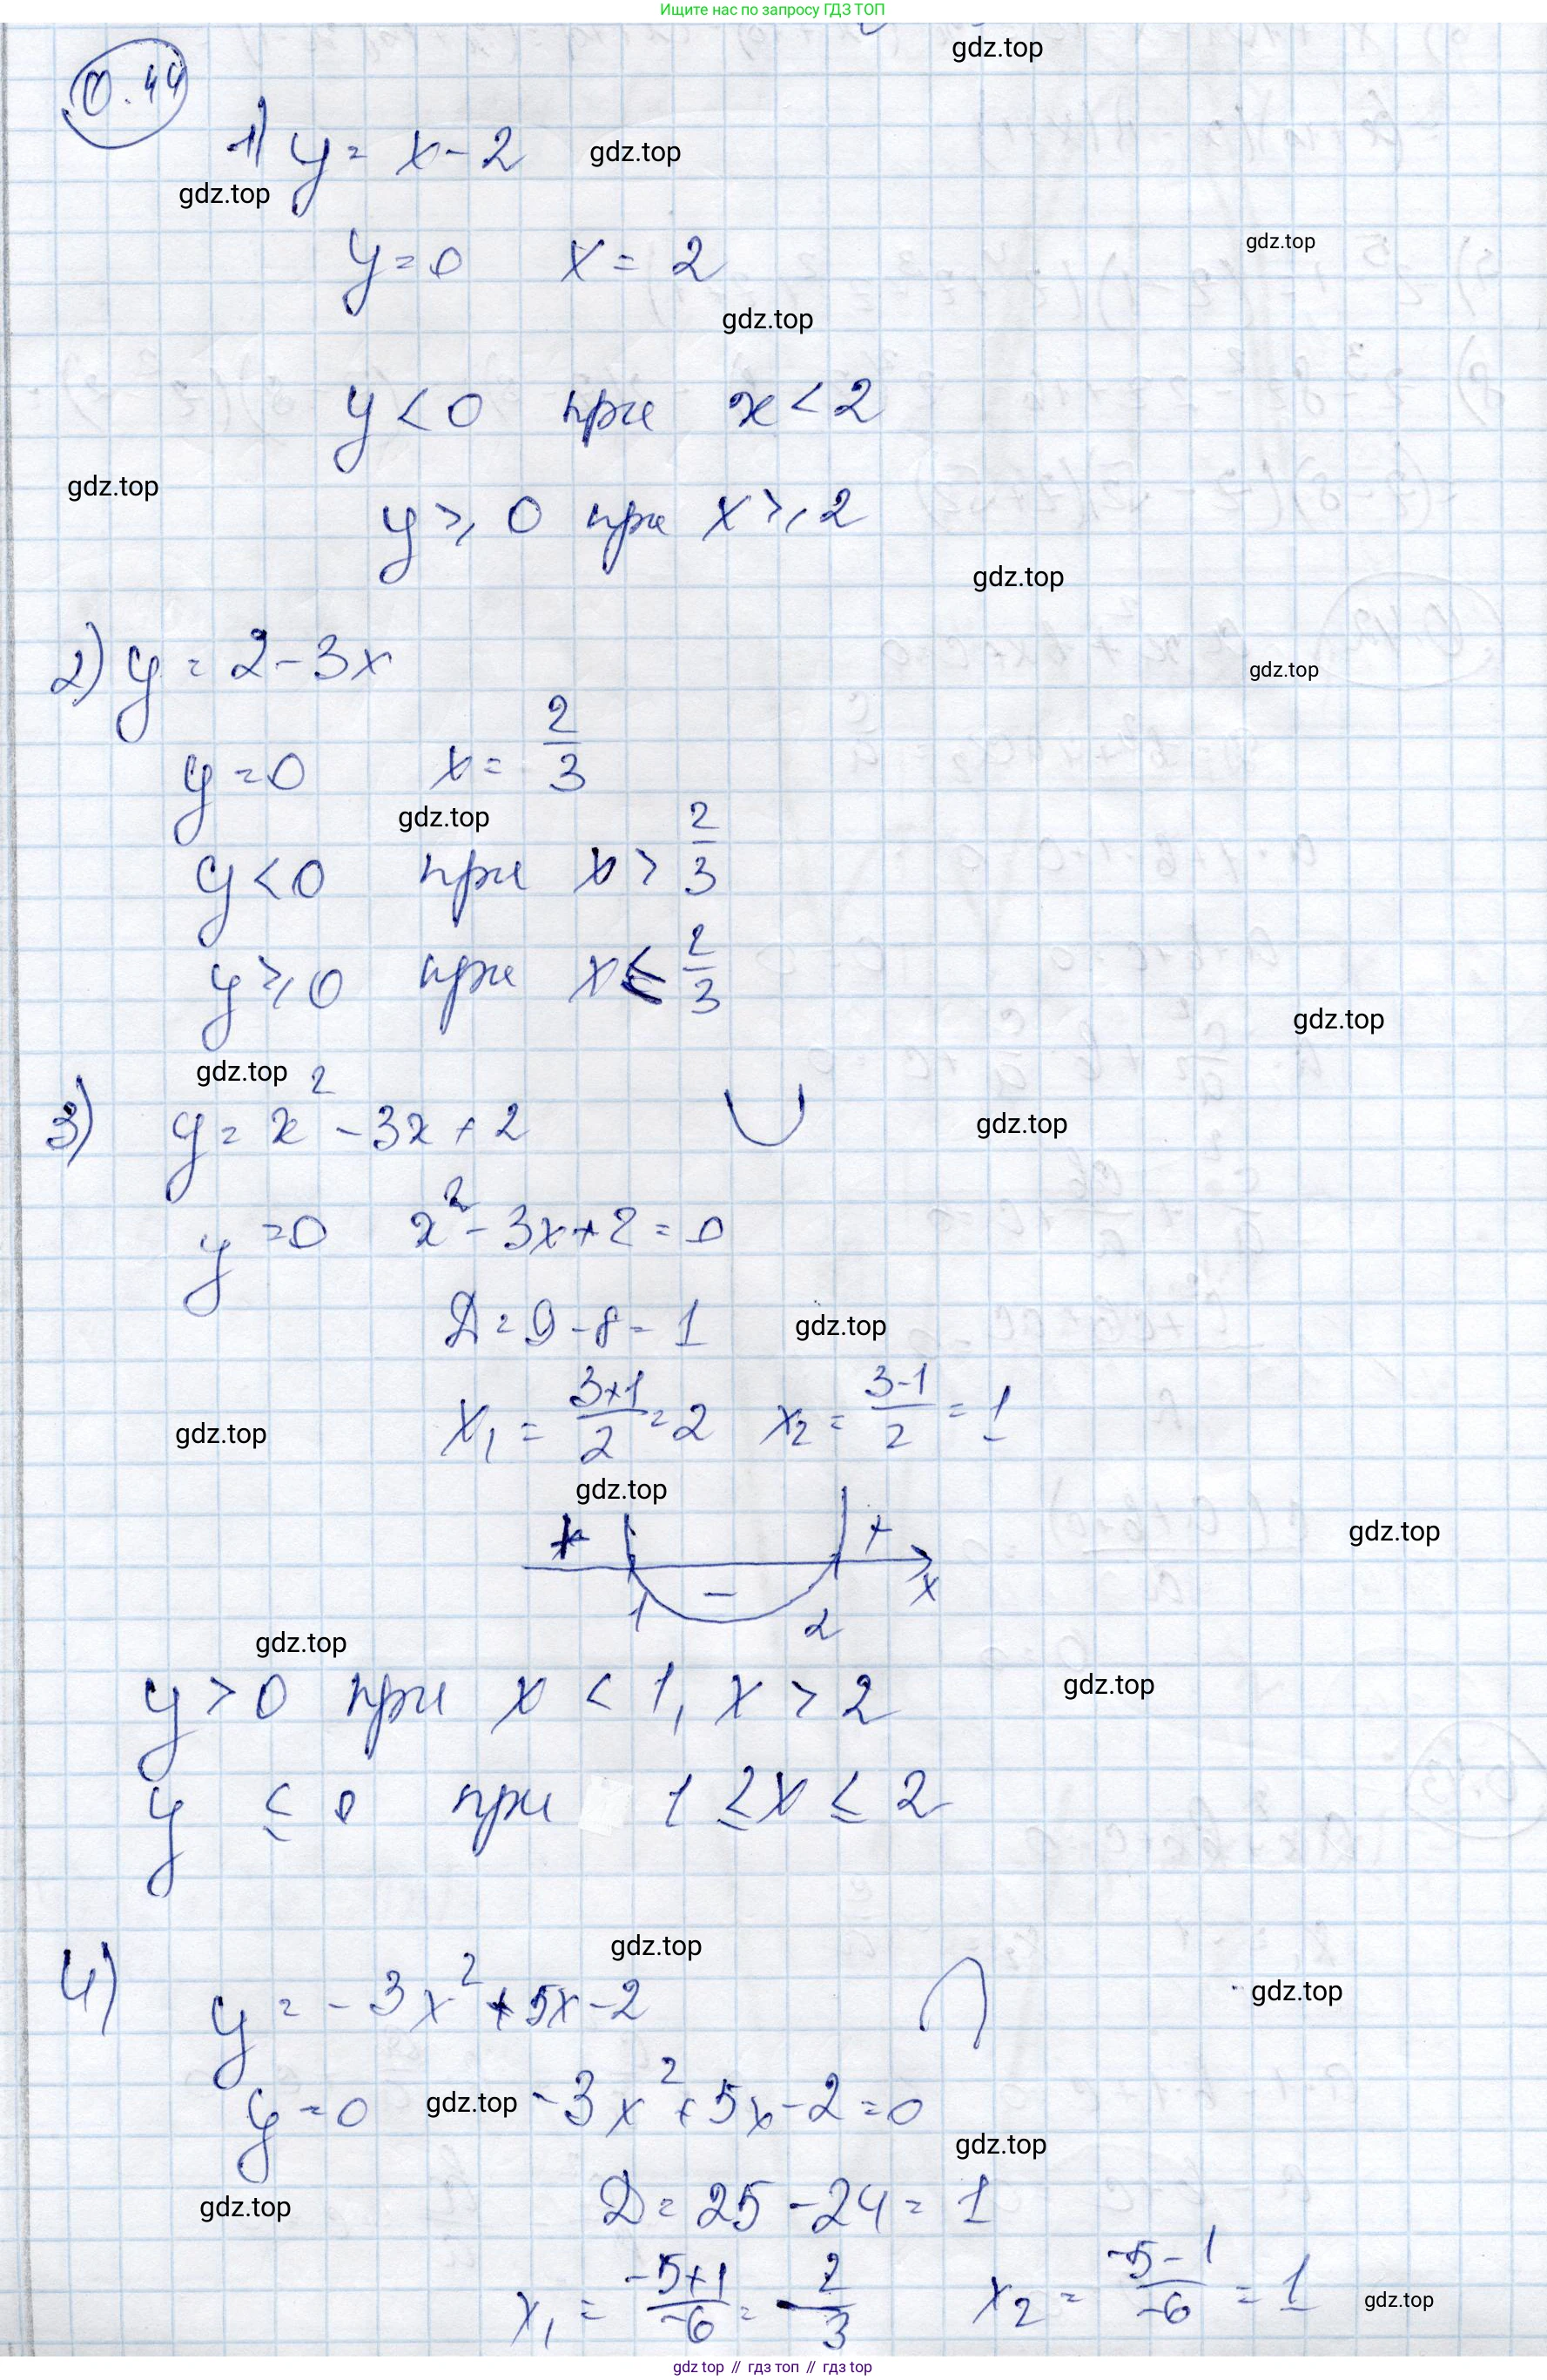 Ищите нас по запросу ГДЗ ТОП
gdz.top
0.44
1) y = x - 2
gdz.top
gdz.top
y = 0 x = 2
gdz.top
gdz.top
y < 0 при x < 2
gdz.top
y ⩾ 0 при x ⩾ 2
gdz.top
2) y = 2 - 3x
gdz.top
y = 0 x = 2/3
gdz.top
y < 0 при x > 2/3
y ⩾ 0 при x ≤ 2/3
gdz.top
gdz.top
3) y = x² - 3x + 2
gdz.top
y = 0 x² - 3x + 2 = 0
D = 9 - 8 = 1
gdz.top
x₁ = (3+1)/2 = 2 x₂ = (3-1)/2 = 1
gdz.top
gdz.top
+ +
gdz.top
- x
1 2
gdz.top
y > 0 при x < 1, x > 2
gdz.top
y ≤ 0 при 1 ≤ x ≤ 2
gdz.top
4) y = -3x² + 5x - 2
gdz.top
y = 0 -3x² + 5x - 2 = 0
gdz.top
gdz.top
D = 25 - 24 = 1
gdz.top
x₁ = (-5+1)/-6 = 2/3 x₂ = (-5-1)/-6 = 1
gdz.top
gdz top // гдз топ // гдз top